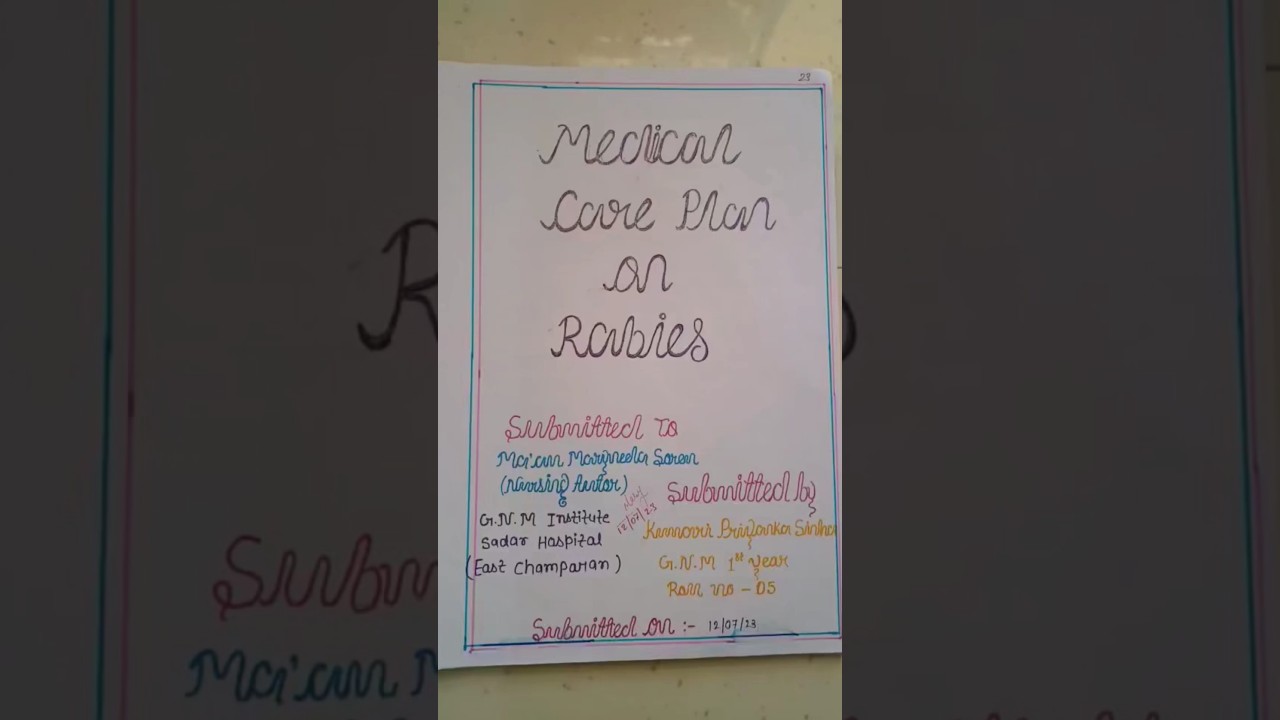 23
Medical
Care Plan
on
Rabies
Submitted To
Ma'am Soren
(Nursing)
G.N.M Institute
Sadar Hospital
(East Champaran)
12/07/23
Submitted by
Kumari Priyanka Sinha
G.N.M 1st year
Roll no - 05
Submitted on :- 12/07/23